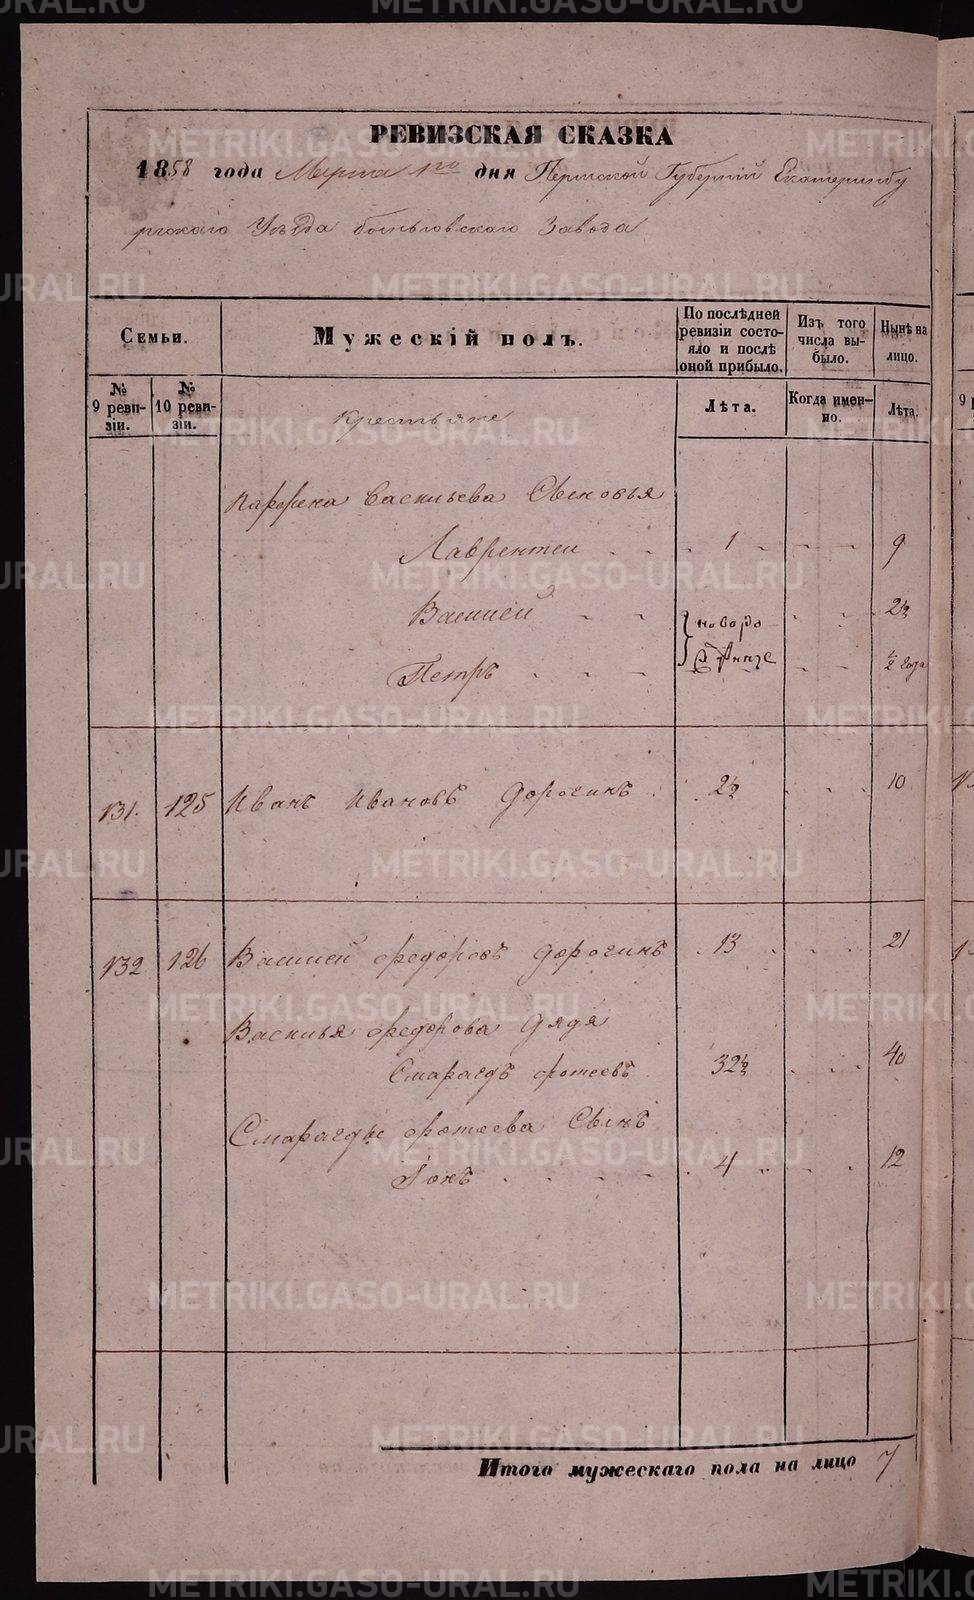 РЕВИЗСКАЯ СКАЗКА
1858 года Марта 1го дня Пермской Губернiи Екатеринбу
ргскаго Уѣзда Завода
Семьи.
Мужескiй полъ.
По послѣдней ревизiи состояло и послѣ оной прибыло.
Изъ того числа выбыло.
Нынѣ на лицо.
№ 9 ревизiи.
№ 10 ревизiи.
Крестьяне
Лѣта.
Когда именно.
Лѣта.
Парфена Васильева Сыновья
Лаврентей 1 9
Василей 2½
новоро
Петръ ½ года
131. 125 Иванъ Ивановъ Дорогинъ 2½ 10
132 126 Василей Федоровъ Дорогинъ 13 21
Василья Федорова Дядя
Смарагдъ Фотеевъ 32½ 40
Смарагды Фотеева Сынъ
Iонъ 4 12
Итого мужескаго пола на лицо 7
METRIKI.GASO-URAL.RU